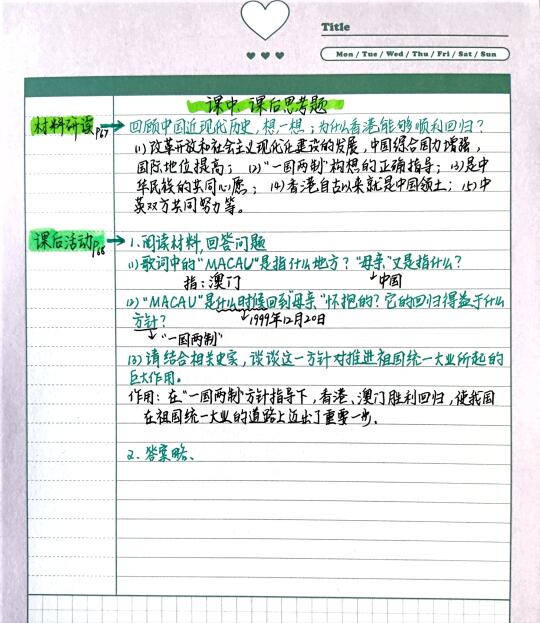 Title
Mon / Tue / Wed / Thu / Fri / Sat / Sun
课中、课后思考题
材料研读P67→回顾中国近现代历史,想一想;为什么香港能够顺利回归?
(1)改革开放和社会主义现代化建设的发展,中国综合国力增强,
国际地位提高;(2)"一国两制"构想的正确指导;(3)是中
华民族的共同心愿;(4)香港自古以来就是中国领土;(5)中
英双方共同努力等。
课后活动P68→1.阅读材料,回答问题
(1)歌词中的"MACAU"是指什么地方?"母亲"又是指什么?
指:澳门 中国
(2)"MACAU"是什么时候回到"母亲"怀抱的?它的回归得益于什么
方针? 1999年12月20日
"一国两制"
(3)请结合相关史实,谈谈这一方针对推进祖国统一大业所起的
巨大作用。
作用:在"一国两制"方针指导下,香港、澳门胜利回归,使我国
在祖国统一大业的道路上迈出了重要一步。
2.答案略、